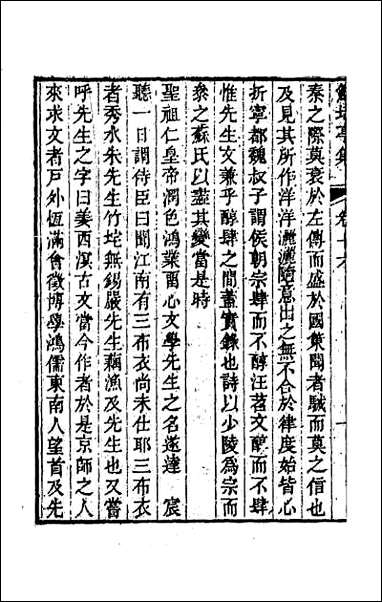 鮚埼亭集 卷十六 一
秦之際莫衰於左傳而盛於國策聞者駴而莫之信也
及見其所作洋洋灑灑隨意出之無不合於律度始皆心
折寧都魏叔子謂侯朝宗肆而不醇汪苕文醇而不肆
惟先生文兼乎醇肆之間蓋實錄也詩以少陵爲宗而
參之蘇氏以盡其變當是時
聖祖仁皇帝潤色鴻業留心文學先生之名遂達 宸
聽一日謂侍臣曰聞江南有三布衣尚未仕耶三布衣
者秀水朱先生竹垞無錫嚴先生藕漁及先生也又嘗
呼先生之字曰姜西溟古文當今作者於是京師之人
來求文者戶外恆滿會徵博學鴻儒東南人望首及先